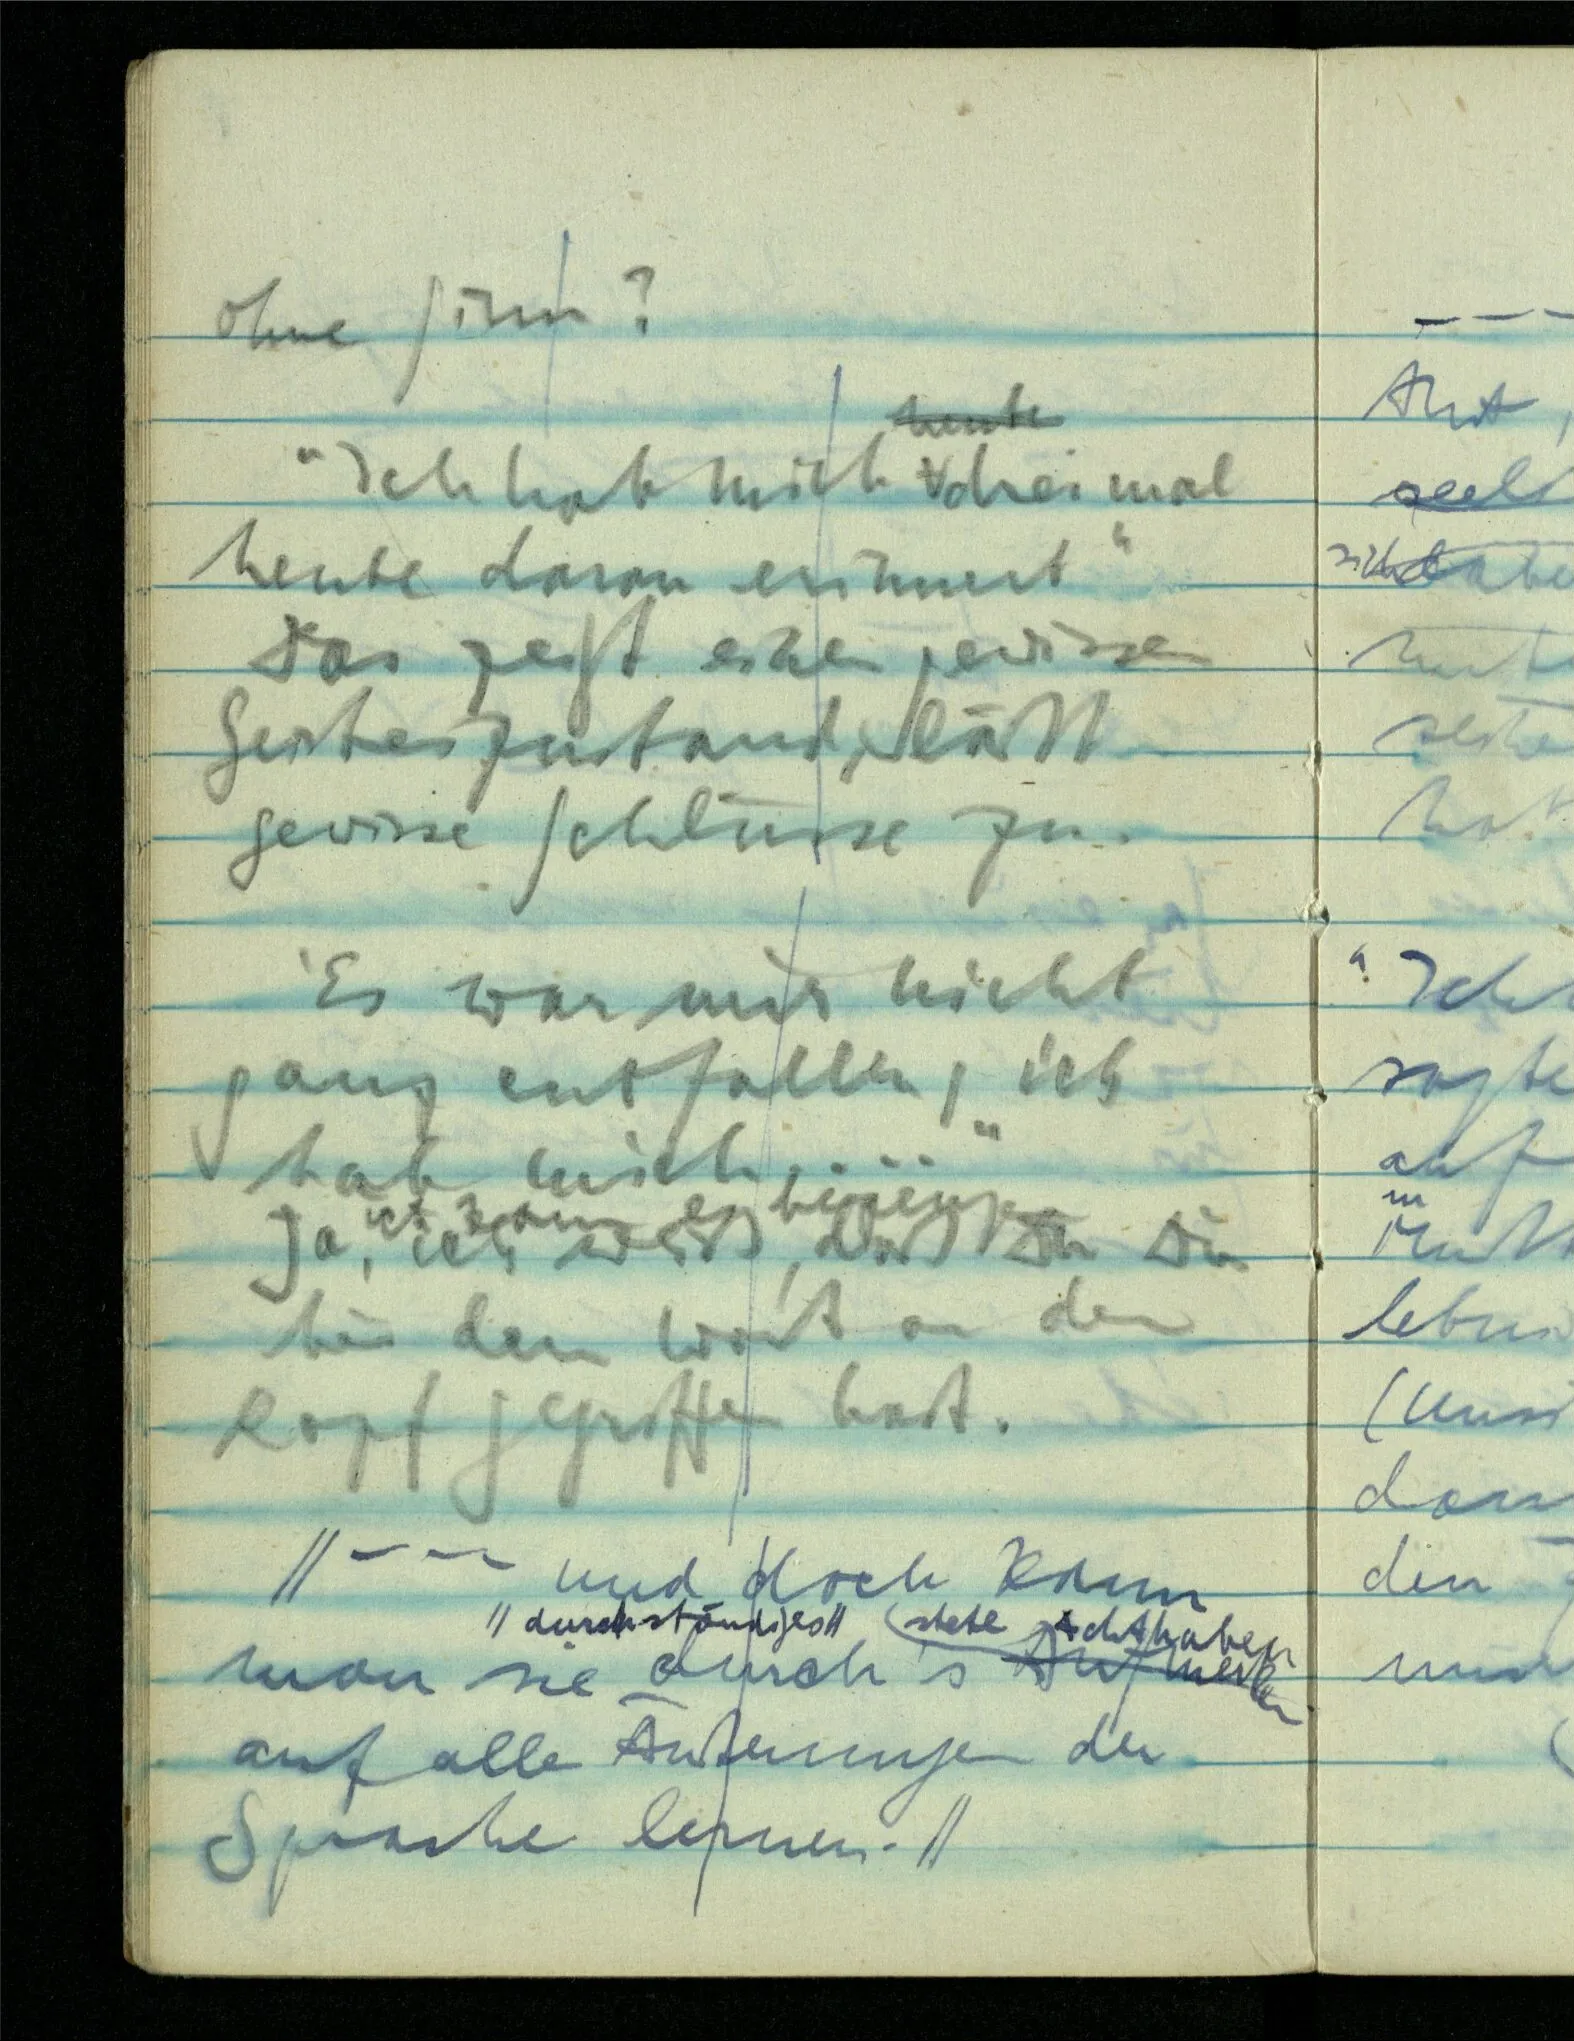 ohne Sinn?
heute
"Ich hab mich dreimal
heute daran erinnert"
Das zeigt einen gewissen
Geisteszustand, läßt
gewisse Schlüsse zu.
"Es war mir nicht
ganz entfallen, ich
hab mich ...."
ich kann es bezeugen
Ja, ich weiß, daß Du Du
bei dem Wort an den
Kopf gegriffen hast.
// – – – und doch kann
// durchständiges // (stete Achthaben
man sie durch's Aufmerken
auf alle Äußerungen der
Sprache lernen. //
– – –
Art,
seel
sicht habe
hat
"Ich
sagte
auf
m
lebens
(Unsi
dara
den
mir
(